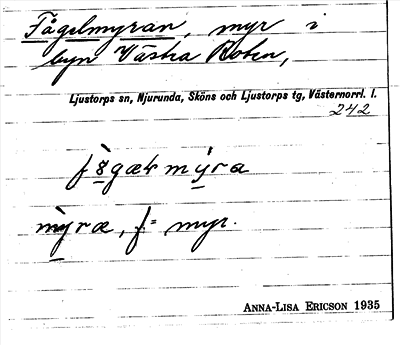 Fågelmyran, myr i
byn Västra Bolen,
Ljustorps sn, Njurunda, Sköns och Ljustorps tg, Västernorrl. l.
242
mỳræ, f= myr.
ANNA-LISA ERICSON 1935